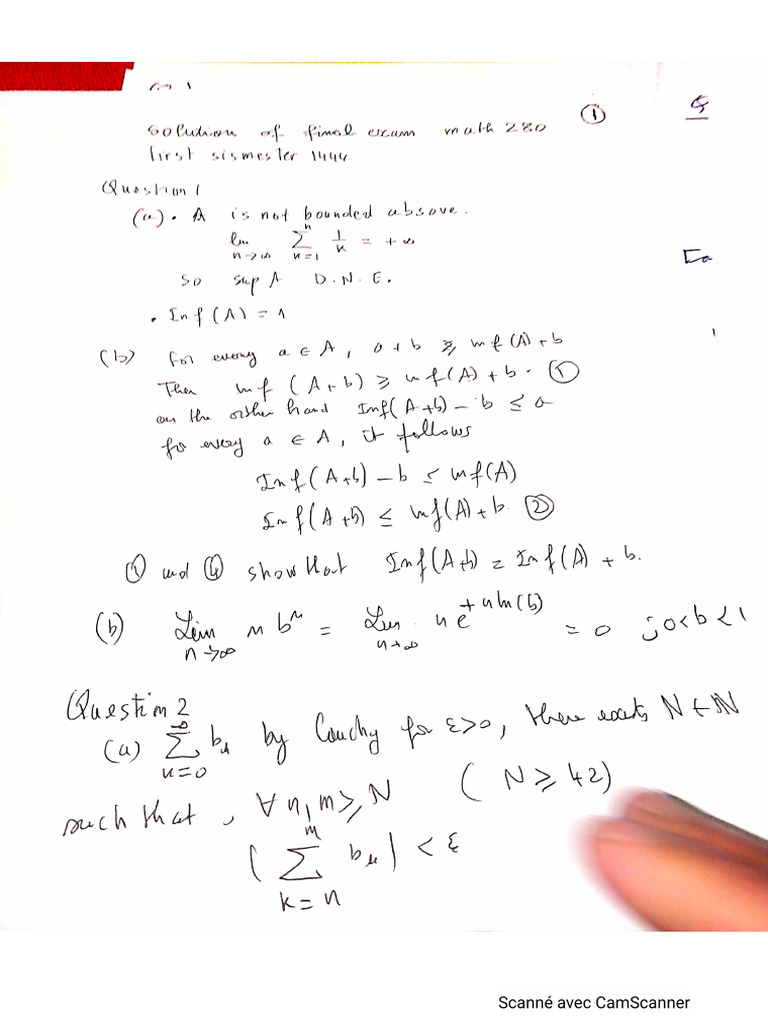 ①
solution of final exam math 280
first sismester 1444
Question 1
(a) • A is not bounded absove.
lim n→∞ ∑_{k=1}^{n} 1/k = +∞
So sup A D.N.E.
• Inf(A) = 1
(b) for every a ∈ A, a + b ≥ inf(A) + b
Then inf (A+b) ≥ inf(A) + b. ①
on the other hand Inf(A+b) - b ≤ a
for every a ∈ A, it follows
Inf(A+b) - b ≤ inf(A)
Inf(A+b) ≤ inf(A) + b ②
① and ④ show that Inf(A+b) = Inf(A) + b.
(b) Lim n→∞ n b^n = Lim n→∞ n e^{+n ln(b)} = 0 ; 0<b<1
Question 2
(a) ∑_{n=0}^{∞} b_n by Cauchy for ε>0, there exists N ∈ ℕ
such that, ∀ n, m ≥ N (N ≥ 42)
|∑_{k=n}^{m} b_k| < ε
Scanné avec CamScanner